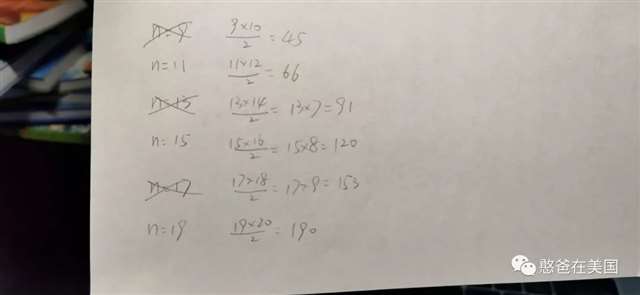 n=9 9×10/2 = 45
n=11 11×12/2 = 66
n=13 13×14/2 = 13×7=91
n=15 15×16/2 = 15×8=120
n=17 17×18/2 = 17×9=153
n=19 19×20/2 = 190
憨爸在美国